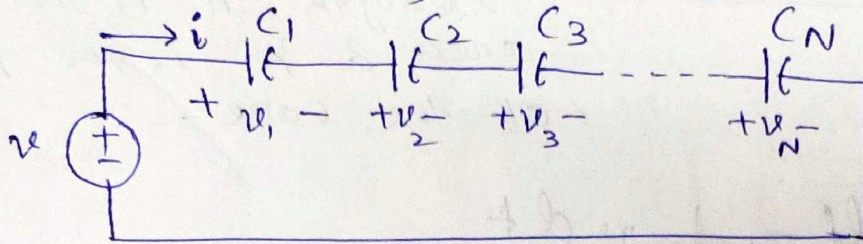 i C1 C2 C3 CN
+ v1 - + v2 - + v3 - + vN -
v + -